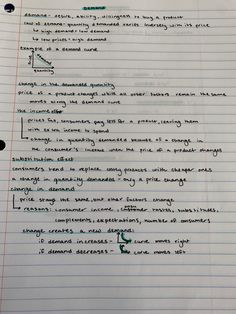 Demand
demand - desire, ability, willingness to buy a product
law of demand - quantity demanded varies inversely with its price
↳ high demand = low demand
↳ low prices = high demand
example of a demand curve
quantity
change in the demanded quantity
price of a product changes while all other factors remain the same
moves along the demand curve
the income effect
prices fall, consumers pay less for a product, leaving them
with extra income to spend
change in quantity demanded because of a change in
the consumer's income when the price of a product changes
substitution effect
consumers tend to replace costly products with cheaper ones
a change in quantity demanded - only a price change
change in demand
price stays the same, but other factors change
↳ reasons: consumer income, consumer tastes, substitutes,
complements, expectations, number of consumers
change creates a new demand:
if demand increases - curve moves right
if demand decreases - curve moves left